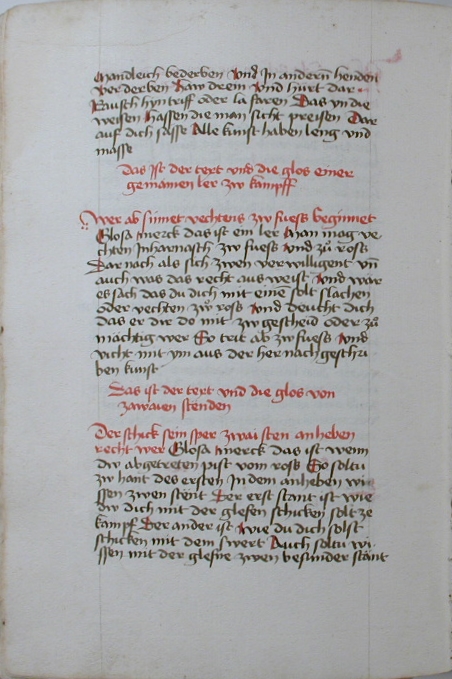 Mandleich bederben Vnd In andern henden
verderben Haw drein Vnd hurt dar
Rausch hyn triff oder la faren Das yn die
weisen Hassen die man sicht preisen Dar
auf dich fasse Alle kunst haben leng vnd
masse
Das Ist der text vnd die glos einer
gemainen ler zw kampff
Wer ab sinnet vechtens zw fuess beginnet
Glosa Merck das ist ein ler Man mag ve
chten Inharnasch zw fuess Vnd zu ross
Dar nach als sich zwen verwilligent vn
auch was das recht aus weist Vnd wär
es sach das du dich mit eine solt slachen
oder vechten zw ross Vnd deucht dich
das er dir do mit zw gescheid oder zu
mächtig wer So trit ab zw fuess Vnd
vicht mit ym aus der her nach geschri
ben kunst
Das ist der text vnd die glos von
zwaien stenden
Der schick sein sper zwai sten anheben
recht wer Glosa Merck das ist wenn
dw abgetreten pist vom ross So soltu
zw hant des ersten In dem anheben wi
ssen zwen stent Der erst stant ist wie
dw dich mit der glefen schicken solt ze
kampf Der ander ist Wie du dich solst
schicken mit dem swert Auch soltu wi
ssen mit der glefne zwen besunder stant